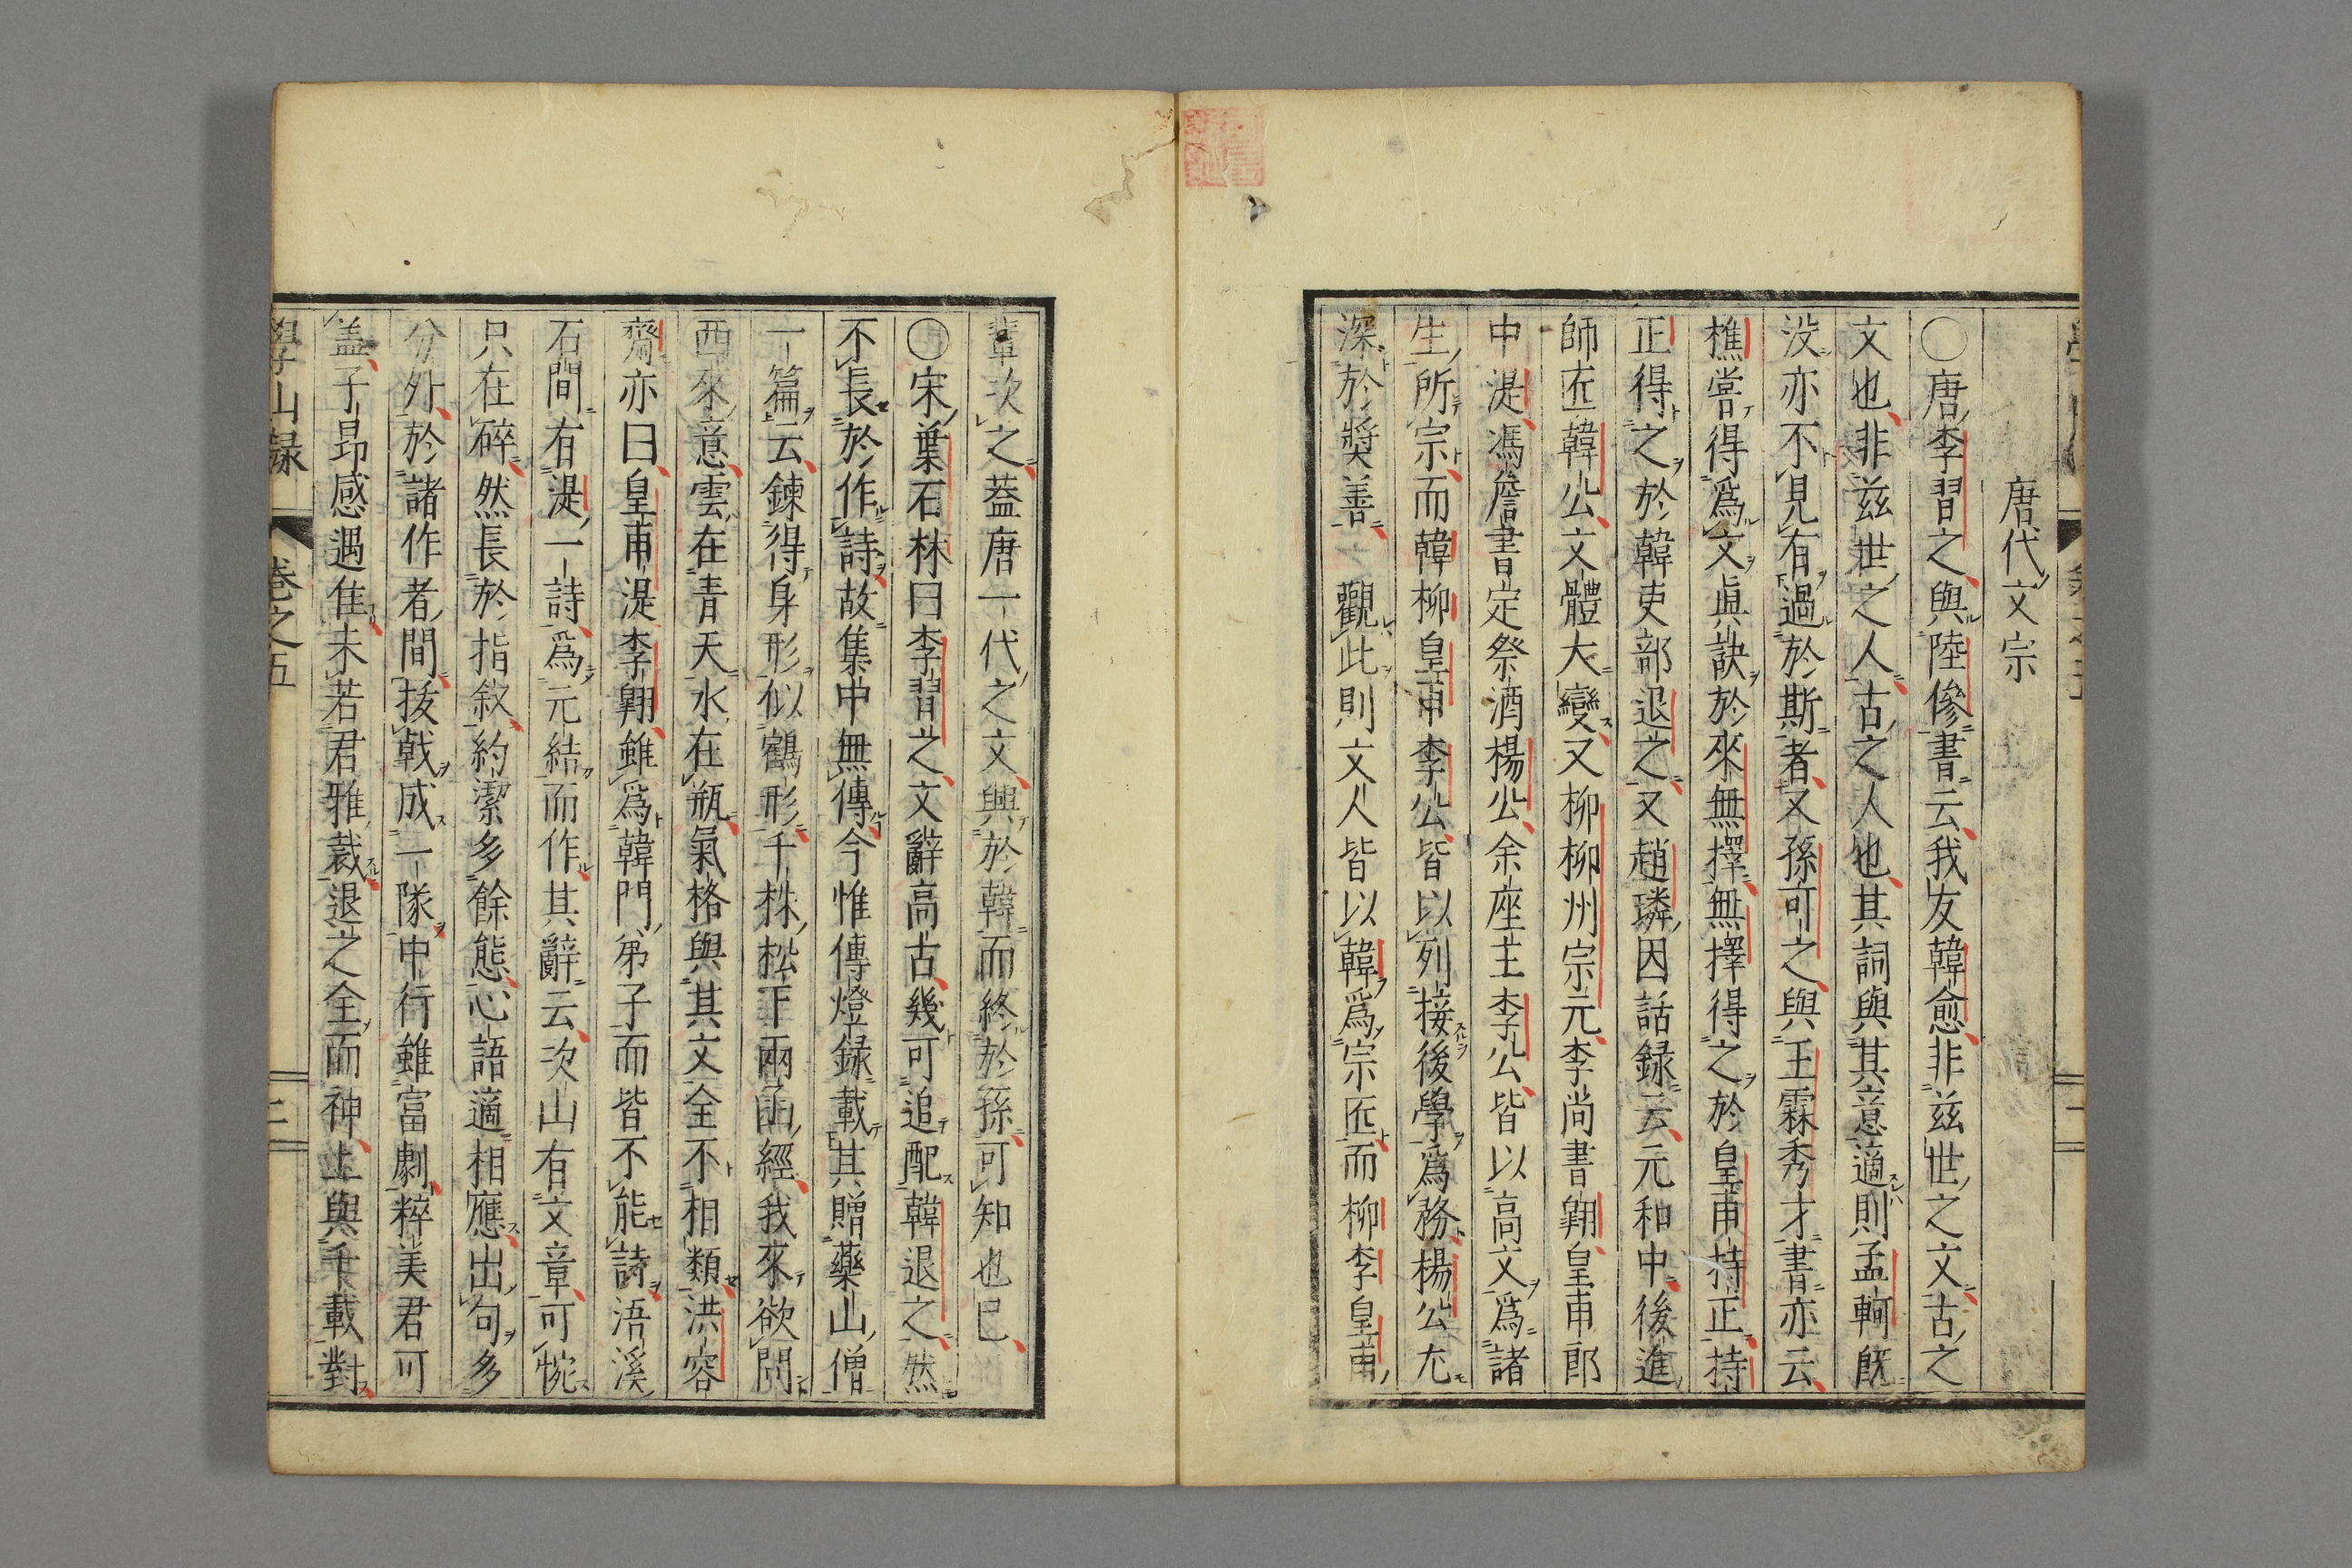 唐代文宗
○唐李習之與陸傪書云我友韓愈非茲世之文古之
文也非茲世之人古之人也其詞與其意適則孟軻既
没亦不見有過於斯者又孫可之與王霖秀才書亦云
樵嘗得爲文眞訣於來無擇無擇得之於皇甫持正持
正得之於韓吏部退之又趙璘因話録云元和中後進
師匠韓公文體大變又柳柳州宗元李尚書翺皇甫郎
中湜馮詹書定祭酒楊公余座主李公皆以高文爲諸
生所宗而韓柳皇甫李公皆以列接後學爲務楊公尤
深於奨善觀此則文人皆以韓爲宗匠而柳李皇甫
輩次之蓋唐一代之文興於韓而終於孫可知也已
○宋葉石林曰李習之文辭高古幾可追配韓退之然
不長於作詩故集中無傳今惟傳燈録載其贈藥山僧
一篇云鍊得身形似鶴形千株松下兩函經我來欲問
西來意雲在青天水在瓶氣格與其文全不相類洪容
齋亦曰皇甫湜李翺雖爲韓門弟子而皆不能詩浯溪
石間有湜一詩爲元結而作其辭云次山有文章可惋
只在碎然長於指敘約潔多餘態心語適相應出句多
分外於諸作者間拔戟成一隊中行雖富劇粹美君可
盖子昂感遇隹未若君雅裁退之全而神上與千載對
學山録 卷之五